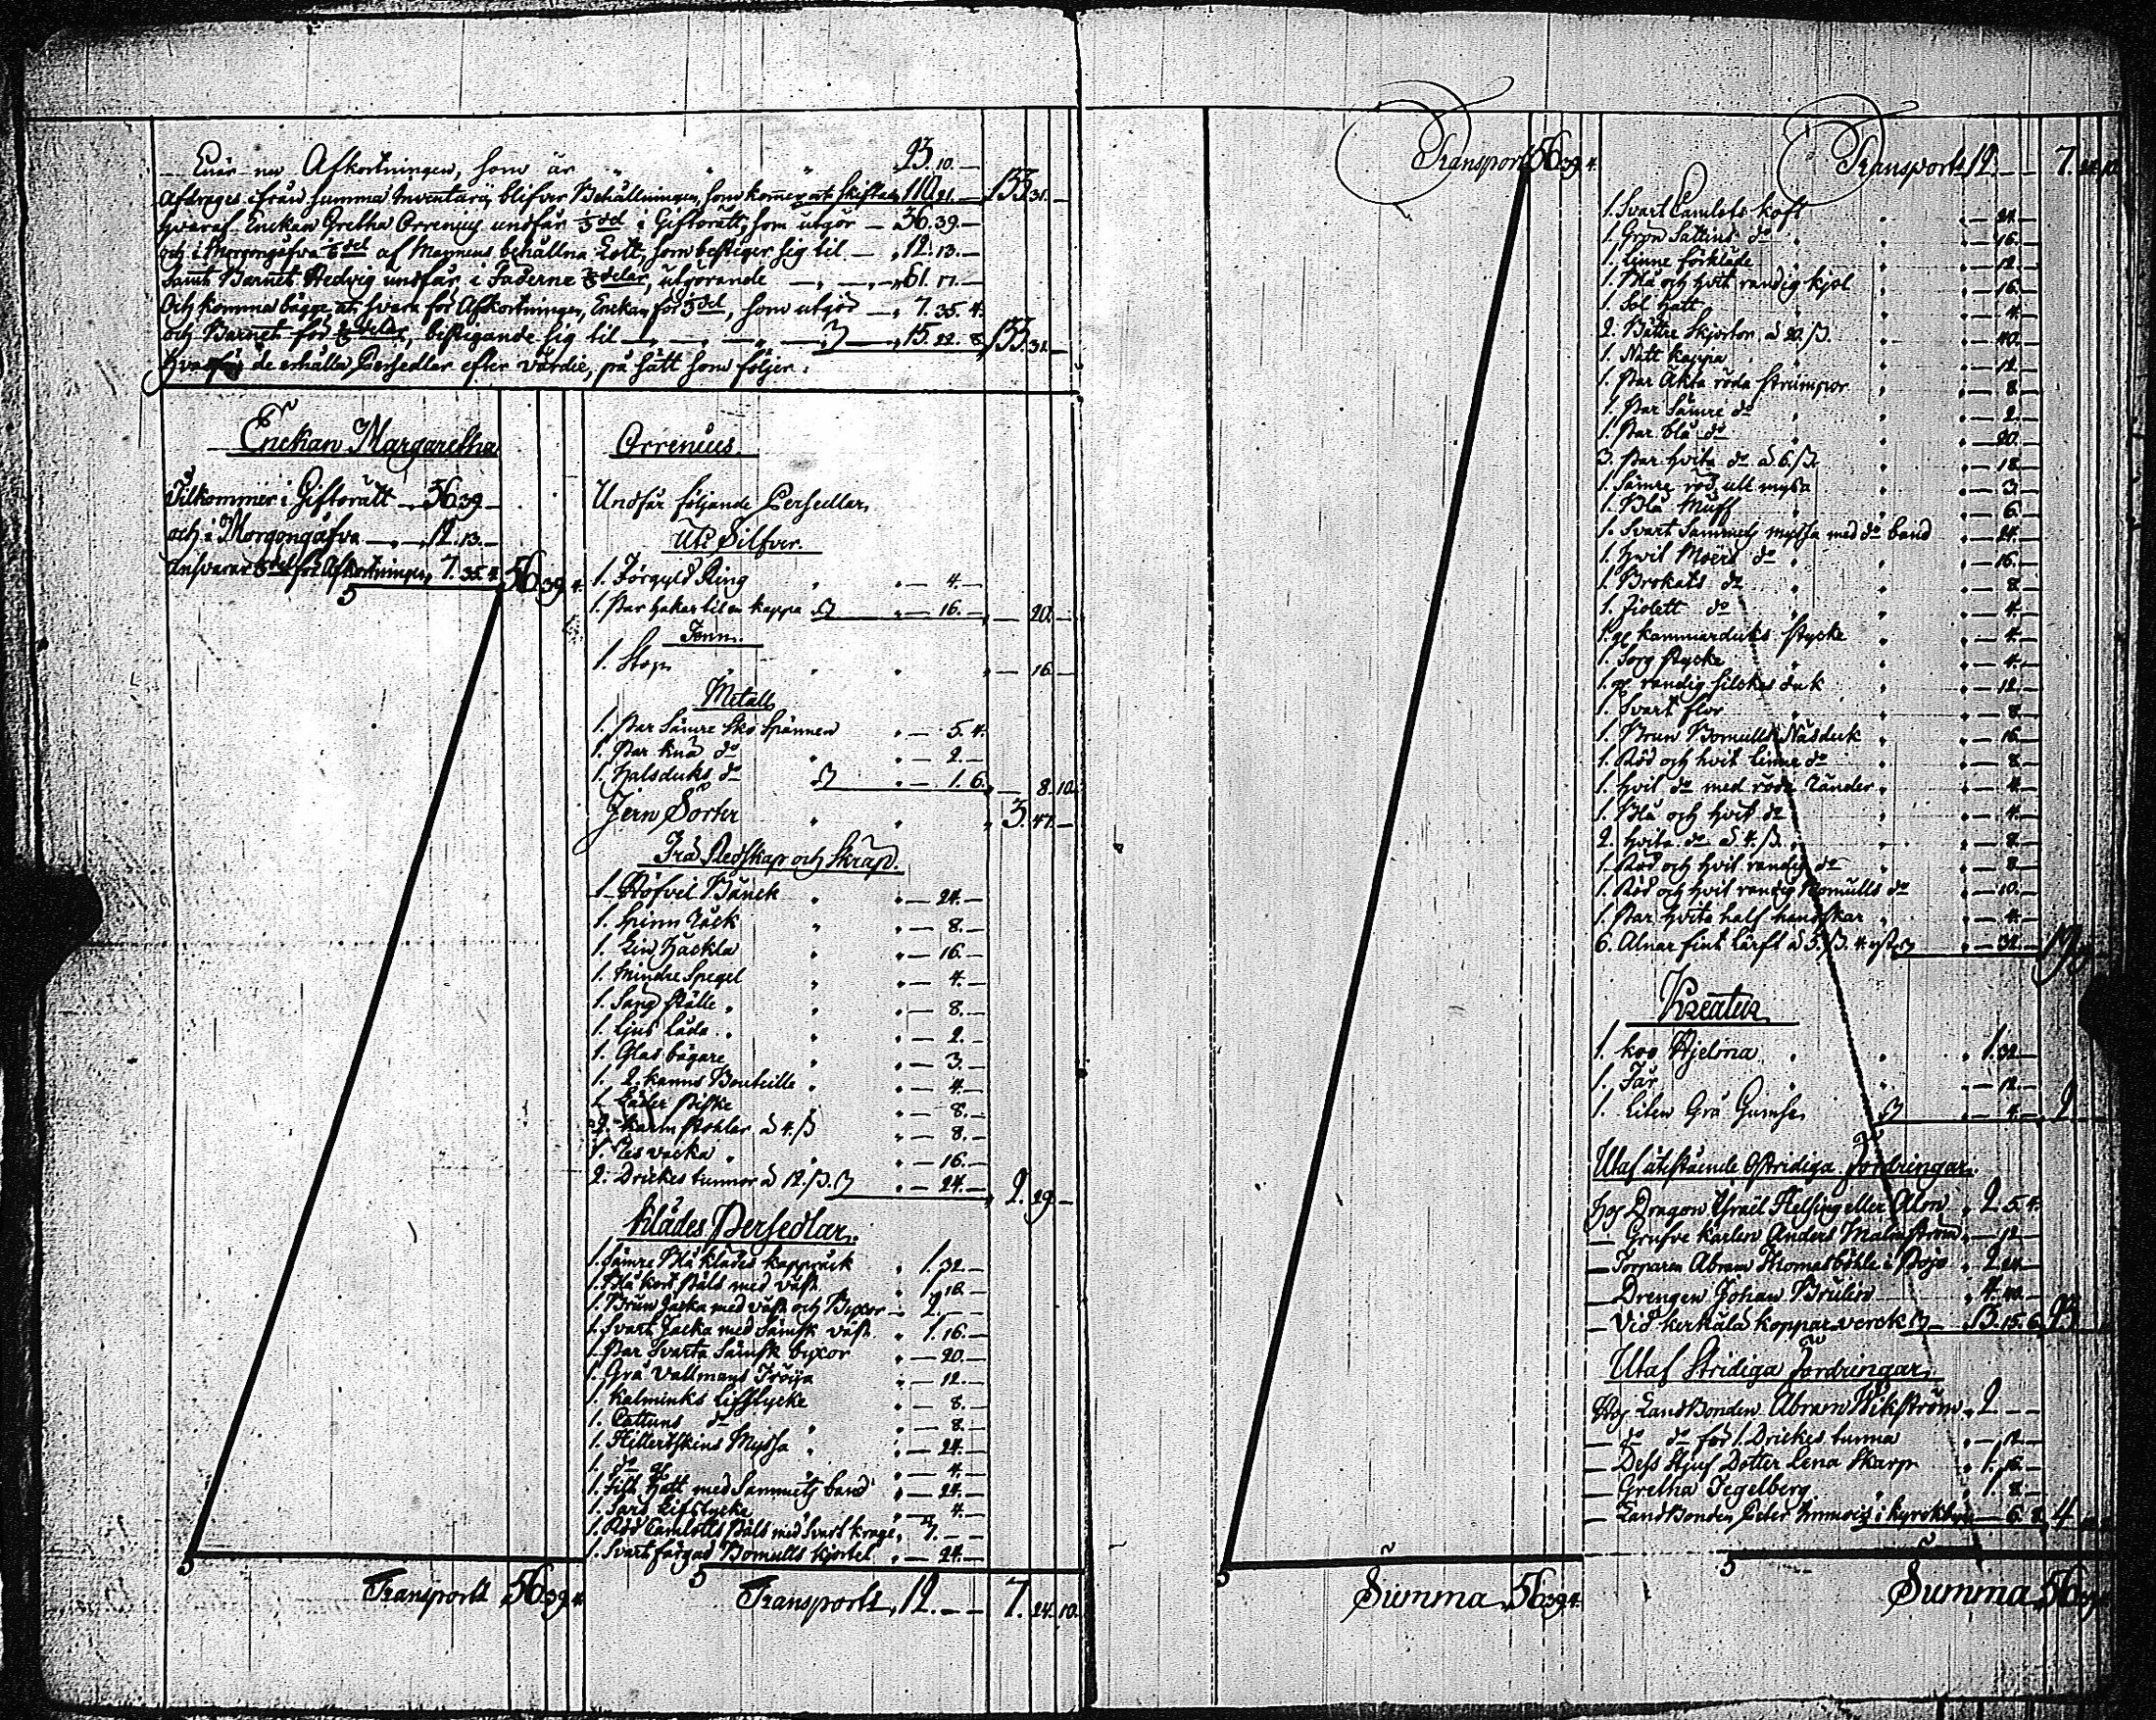 Enär nu Afkortningen, som är " " " 23.10.—
Afdrages ifrån summa Inventarii, blifver Behållningen, som kommer at skiftas 110.21.— 133.31.—
hvaraf Enckan Gretha Orrenius undfår 1/3 del i Giftorätt, som utgör — 36.39.—
och i Morgongåfva del af Mannens behållna Lott, som bestiger sig til — 12.13.—
samt Barnet Hedvig undfår i Faderne delar, utgörande — 61.17.—
Och komma bägge at svara för Afkortningen, Enckan för 1/3 del, som utgör — 7.35.4.
och Barnet för 2/3 delar, bestigande sig til — 15.22.8. 133.31.—
de erhålla Persedlar efter värdie, på sätt som följer:
Enckan Margaretha Orrenius
Tilkommer i Giftorätt — 36.39.—
och i Morgongåfva — 12.13.—
Ansvarar 1/3 del för Afkortningen 7.35.4. 56.39.4.
Transport 56.39.4.
Undfår följande Persedlar,
Uti Silfver.
1. Förgyld Ring " — 4.—
1. Par hakar til en kappa — 16.— " 20.—
Tenn.
1. Stop " — 16.—
Metall
1. Par sämre Sko Spännen — 5.4.
1. Par knä do — 2.—
1. Halsduks do — 1.6. — 8.10.
Jern Sorter " 3.47.—
Trä Redskap och Skrap.
1. Höfvel Bänck — 24.—
1. Spinn Råck — 8.—
1. Lin Häckla — 16.—
1. Mindre Spegel — 4.—
1. Säng ställe — 8.—
1. Ljus låda — 2.—
1. Glas bägare — 3.—
1. 2. kanns Bouteille — 4.—
1. Läder — 8.—
2. karm stohlar à 4./3 — 8.—
1. Res vacka — 16.—
2. Drickes tunnor à 12./3. — 24.— 2.29.—
Klädes Persedlar.
1. Sämre Blå klädes kappråck " 1.32.—
1. Blå kort Päls med väst " 1.16.—
1. Brun Jacka med väst och Byxor — 2.—
1. Svart Jacka med Sämsk väst " 1.16.—
1. Par Svarta Sämsk byxor " — 20.—
1. Grå vallmans Tröija " — 12.—
1. kalminks Lifstycke " — 8.—
1. Cattuns do " — 8.—
1. Hillerskins Myssa " — 24.—
1. do " — 4.—
1. Hatt med Sammets band " — 24.—
1. Sars Lifstycke " — 4.—
1. Röd Camlotts Päls med Svart krage " 1.—
1. Svart färgad Bomulls kjortel " — 24.—
Transport 12.— 7.24.10.
Transport 56.39.4.
Summa 56.39.4.
Transport 12.— 7.24.10.
1. Svart Camlots koft " — 24.—
1. Grön Sattins do " — 16.—
1. Linne förkläde " — 12.—
1. Blå och hvit randig kjol " — 16.—
1. Sol hatt " — 4.—
2. Bättre Skjortor à 20./3. " — 40.—
1. Natt kappa " — 12.—
1. Par Äkta röda Strumpor " — 8.—
1. Par Sämre do " — 2.—
1. Par blå do " — 20.—
3. Par hvita do à 6./3. " — 18.—
1. Sämre röd ull myssa " — 3.—
1. Blå Muff " — 6.—
1. Svart Sammets myssa med do band " — 24.—
1. hvit Moers do " — 16.—
1. Brokats do " — 8.—
1. Fiolett do " — 4.—
1. kammarduks stycke " — 4.—
1. Sorg stycke " — 4.—
1. randig silckes duk " — 12.—
1. Svart flor " — 8.—
1. Brun Bomulls Näsduk " — 16.—
1. Röd och hvit Linne do " — 8.—
1. hvit do med röda ränder " — 4.—
1. Blå och hvit do " — 4.—
2. hvita do à 4./3. " — 8.—
1. Röd och hvit randig do " — 8.—
1. Röd och hvit randig Bomulls do " — 10.—
1. Par hvita half handskar " — 4.—
6. Alnar fint Lärft à 5./3. 4 — 32.—
Kreatur
1. koo Hjelma " 1.32.—
1. Får " — 12.—
1. Liten Grå Gumse — 4.— 2
Utaf utestående Ostridiga fordringar.
Hos Dragon Israel Helsing eller Alon " 2.5.4.
— Grufve karlen Anders Malmström — 12.—
— Torparen Abram Thomasböhle i Pojo " 2.24.—
— Drengen Johan Brulin " 4.
— Vid kerkälä koppar verck — 13.15.6. 23
Utaf Stridiga fordringar.
Hos LandBonden Abram Wikström " 2.—
— do do för 1. Drickes tunna " — 12.—
— Dess Stjuf Dotter Lena Skarp " 1.16.—
— Gretha Tegelberg " 1.8.—
— LandBonden Peter i kyrckbyn — 6.8. 4
Summa 56.39.